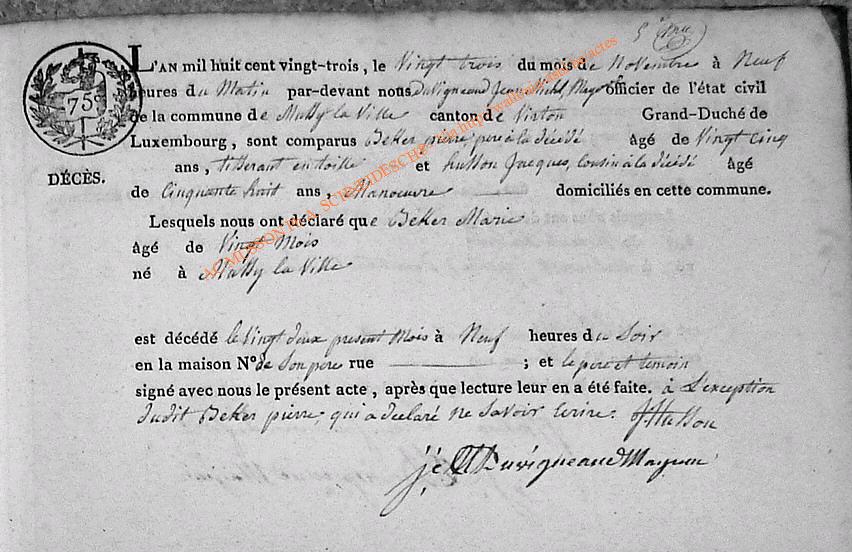 5eme
L'AN mil huit cent vingt-trois, le Vingt trois du mois de Novembre à Neuf
heures du Matin par-devant nous Duvigneaud Jean Michel Mayeur officier de l'état civil
de la commune de Mussy la Ville canton de Virton Grand-Duché de
Luxembourg, sont comparus Beker pierre pere à la décédé âgé de Vingt Cinq
ans, tisserant en toille et husson Jacques, Cousin à la décédé âgé
DÉCÈS.
de Cinquante huit ans, Manoeuvre domiciliés en cette commune.
Lesquels nous ont déclaré que Beker Marie
âgé de Vingt Mois
né à Mussy la Ville
est décédé le Vingt deux present Mois à Neuf heures du Soir
en la maison N° de Son pere rue ; et le pere et temoin
signé avec nous le présent acte, après que lecture leur en a été faite. à L'exception
dudit Beker pierre, qui a declaré ne Savoir Ecrire. JHusson
Duvigneaud Mayeur
75